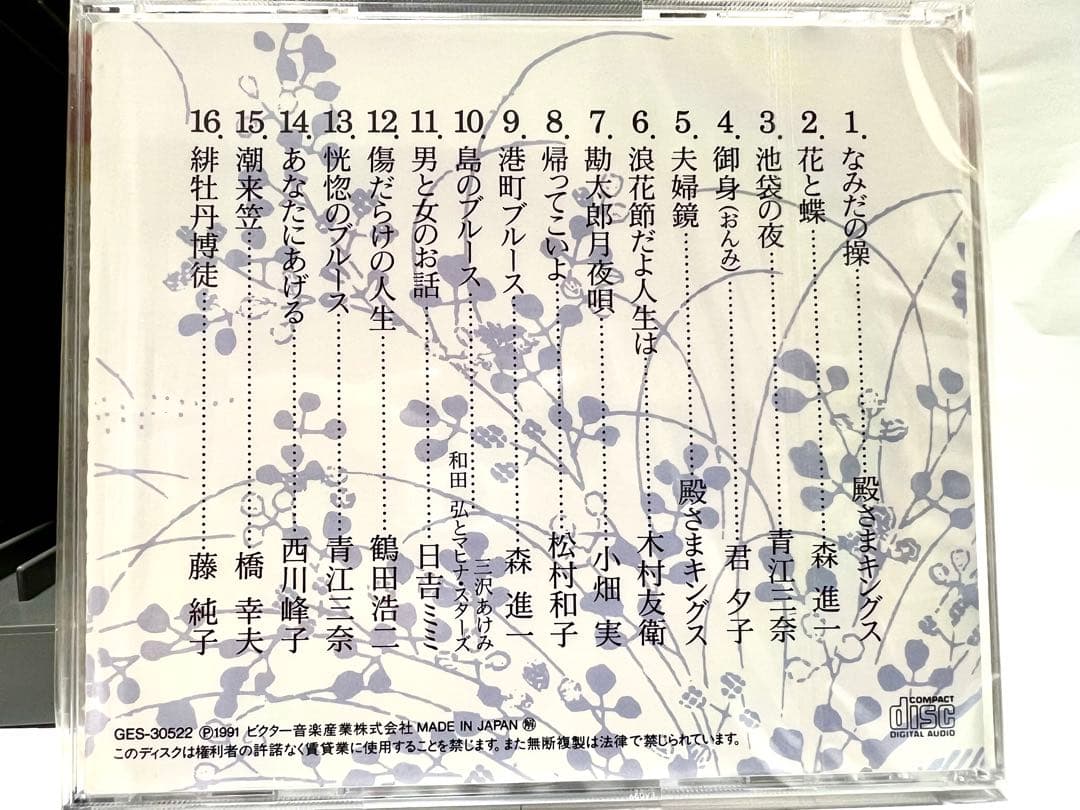 1. なみだの操……殿さまキングス
2. 花と蝶……森 進一
3. 池袋の夜……青江三奈
4. 御身(おんみ)……君 夕子
5. 夫婦鏡……殿さまキングス
6. 浪花節だよ人生は……木村友衛
7. 勘太郎月夜唄……小畑 実
8. 帰ってこいよ……松村和子
9. 港町ブルース……森 進一
10. 島のブルース……三沢あけみ
和田 弘とマヒナ・スターズ
11. 男と女のお話……日吉ミミ
12. 傷だらけの人生……鶴田浩二
13. 恍惚のブルース……青江三奈
14. あなたにあげる……西川峰子
15. 潮来笠……橋 幸夫
16. 緋牡丹博徒……藤 純子
COMPACT
disc
DIGITAL AUDIO
GES-30522 Ⓟ1991 ビクター音楽産業株式会社 MADE IN JAPAN
このディスクは権利者の許諾なく賃貸業に使用することを禁じます。また無断複製は法律で禁じられています。